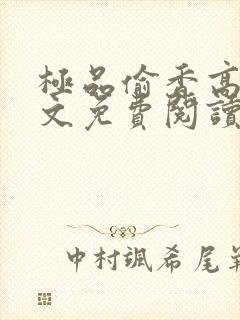 極品偷香高
文免費閱讀
中村颯希尾